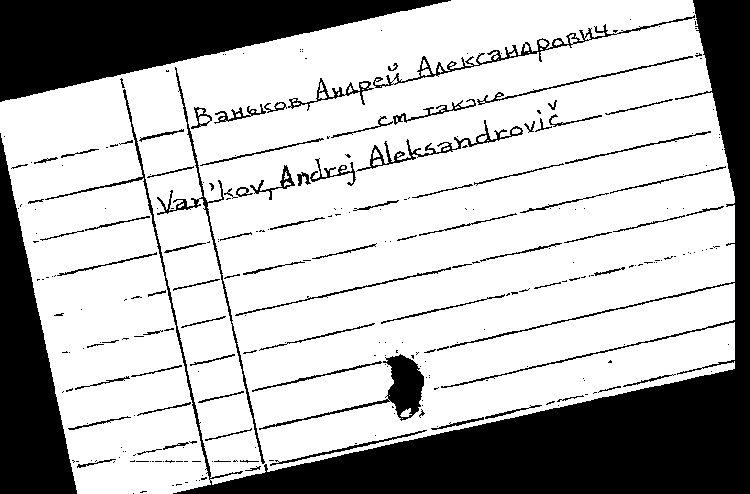 Ваньков, Андрей Александрович.
см. также
Van'kov, Andrej Aleksandrovič